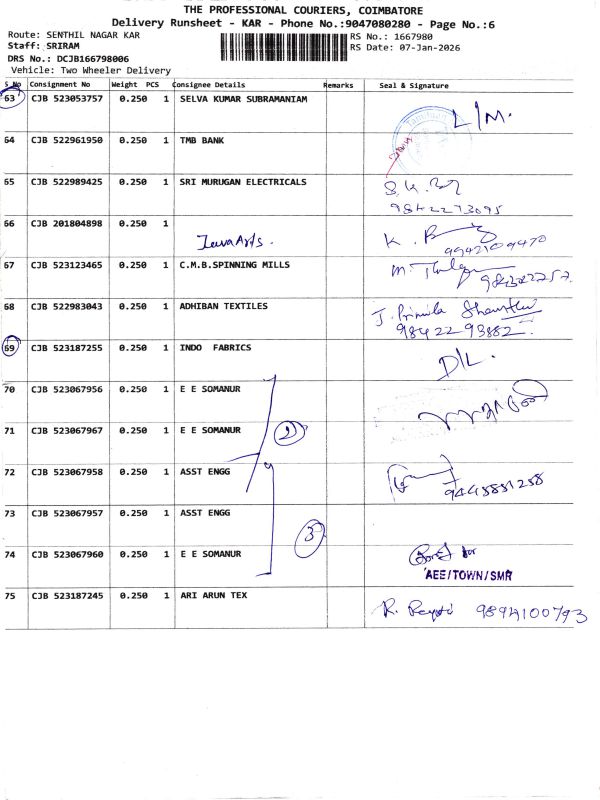 THE PROFESSIONAL COURIERS, COIMBATORE
Delivery Runsheet - KAR - Phone No.:9047080280 - Page No.:6
Route: SENTHIL NAGAR KAR
RS No.: 1667980
Staff: SRIRAM
RS Date: 07-Jan-2026
DRS No.: DCJB166798006
Vehicle: Two Wheeler Delivery
S No Consignment No Weight PCS Consignee Details Remarks Seal & Signature
63 CJB 523053757 0.250 1 SELVA KUMAR SUBRAMANIAM L/M.
64 CJB 522961950 0.250 1 TMB BANK
65 CJB 522989425 0.250 1 SRI MURUGAN ELECTRICALS
9842273095
66 CJB 201804898 0.250 1
K.
9942109470
67 CJB 523123465 0.250 1 C.M.B.SPINNING MILLS
M.
68 CJB 522983043 0.250 1 ADHIBAN TEXTILES
J. Primila
9842293882
69 CJB 523187255 0.250 1 INDO FABRICS D/L.
70 CJB 523067956 0.250 1 E E SOMANUR
71 CJB 523067967 0.250 1 E E SOMANUR 2
72 CJB 523067958 0.250 1 ASST ENGG
9445851258
73 CJB 523067957 0.250 1 ASST ENGG
3
74 CJB 523067960 0.250 1 E E SOMANUR
AEE/TOWN/SMR
75 CJB 523187245 0.250 1 ARI ARUN TEX
R. 9894100793